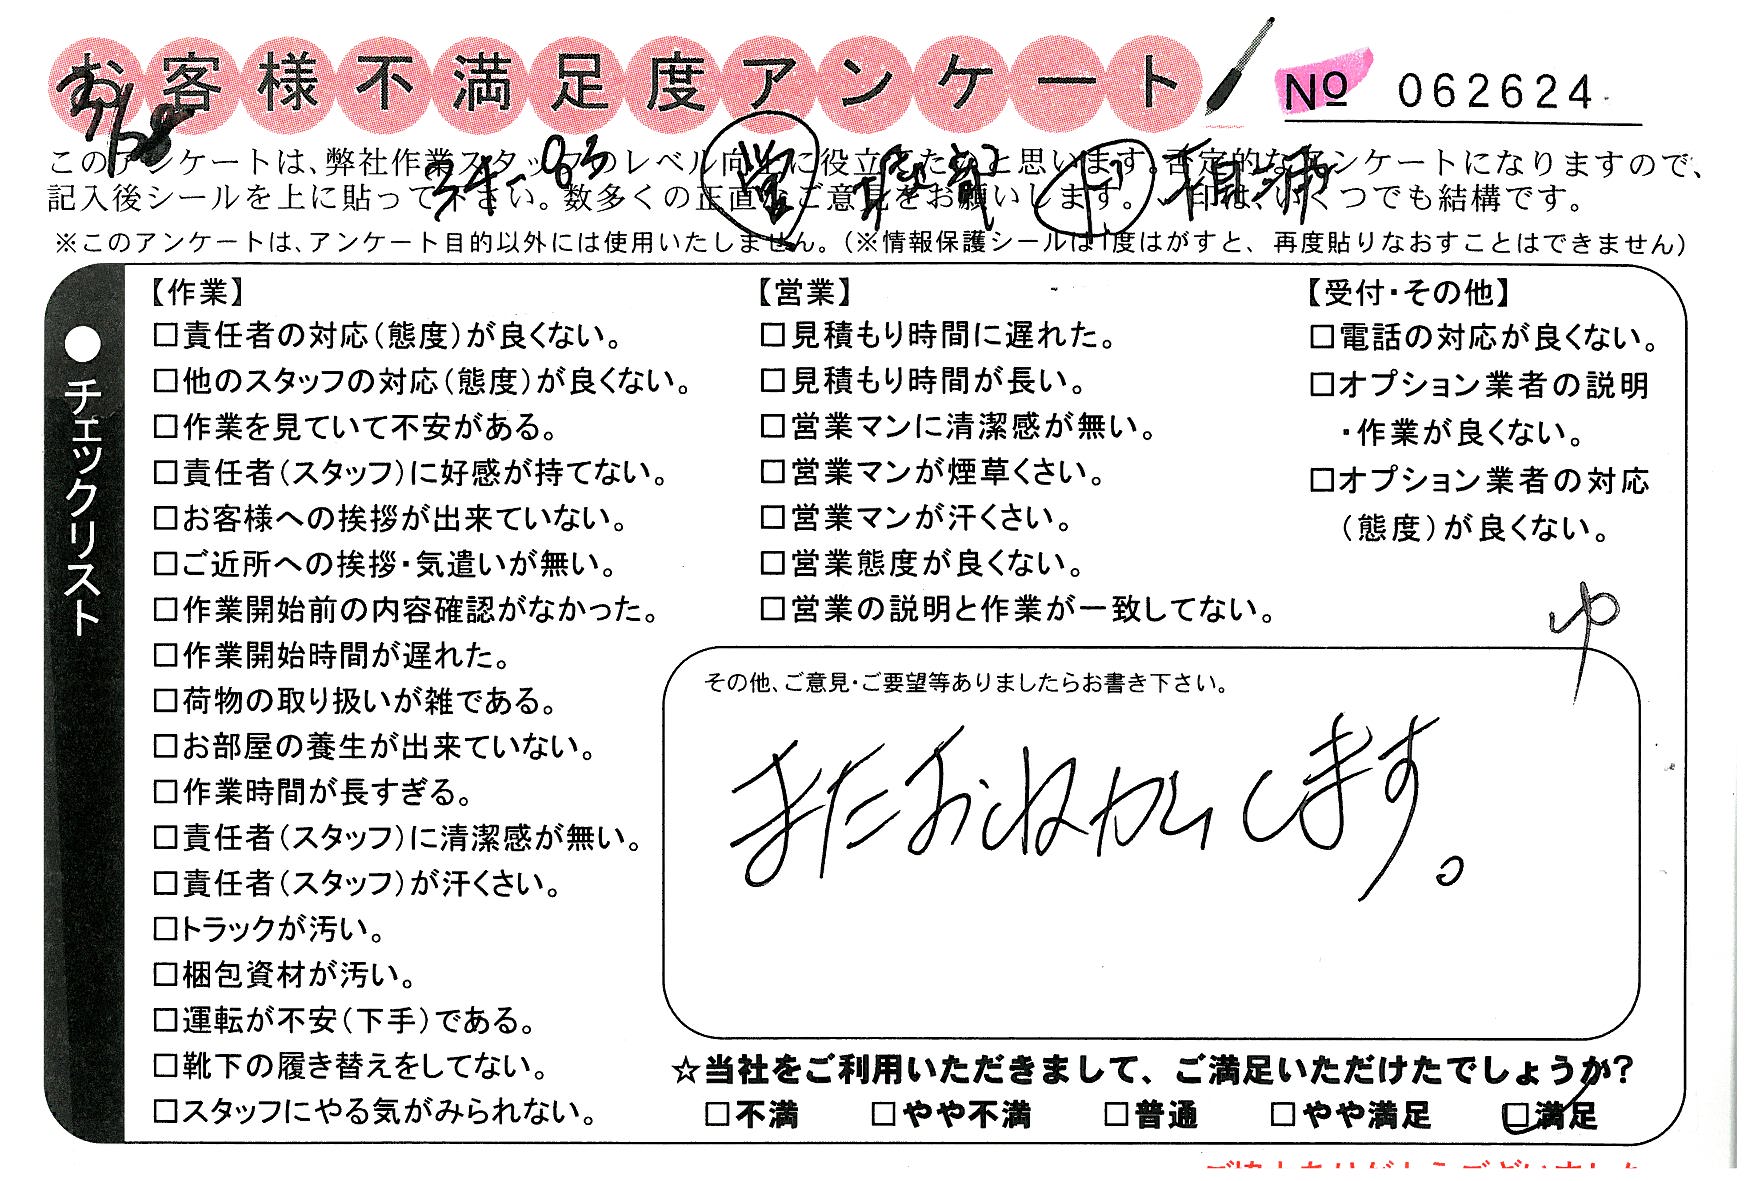 お客様不満足度アンケート
No 062624
このアンケートは、弊社作業スタッフのレベル向上に役立てたいと思います。否定的なアンケートになりますので、
記入後シールを上に貼って下さい。数多くの正直なご意見をお願いします。✓印は、いくつでも結構です。
※このアンケートは、アンケート目的以外には使用いたしません。(※情報保護シールは1度はがすと、再度貼りなおすことはできません)
●チェックリスト
【作業】
□責任者の対応(態度)が良くない。
□他のスタッフの対応(態度)が良くない。
□作業を見ていて不安がある。
□責任者(スタッフ)に好感が持てない。
□お客様への挨拶が出来ていない。
□ご近所への挨拶・気遣いが無い。
□作業開始前の内容確認がなかった。
□作業開始時間が遅れた。
□荷物の取り扱いが雑である。
□お部屋の養生が出来ていない。
□作業時間が長すぎる。
□責任者(スタッフ)に清潔感が無い。
□責任者(スタッフ)が汗くさい。
□トラックが汚い。
□梱包資材が汚い。
□運転が不安(下手)である。
□靴下の履き替えをしてない。
□スタッフにやる気がみられない。
【営業】
□見積もり時間に遅れた。
□見積もり時間が長い。
□営業マンに清潔感が無い。
□営業マンが煙草くさい。
□営業マンが汗くさい。
□営業態度が良くない。
□営業の説明と作業が一致してない。
【受付・その他】
□電話の対応が良くない。
□オプション業者の説明
・作業が良くない。
□オプション業者の対応
(態度)が良くない。
その他、ご意見・ご要望等ありましたらお書き下さい。
またおねがいします。
☆当社をご利用いただきまして、ご満足いただけたでしょうか?
□不満 □やや不満 □普通 □やや満足 □満足